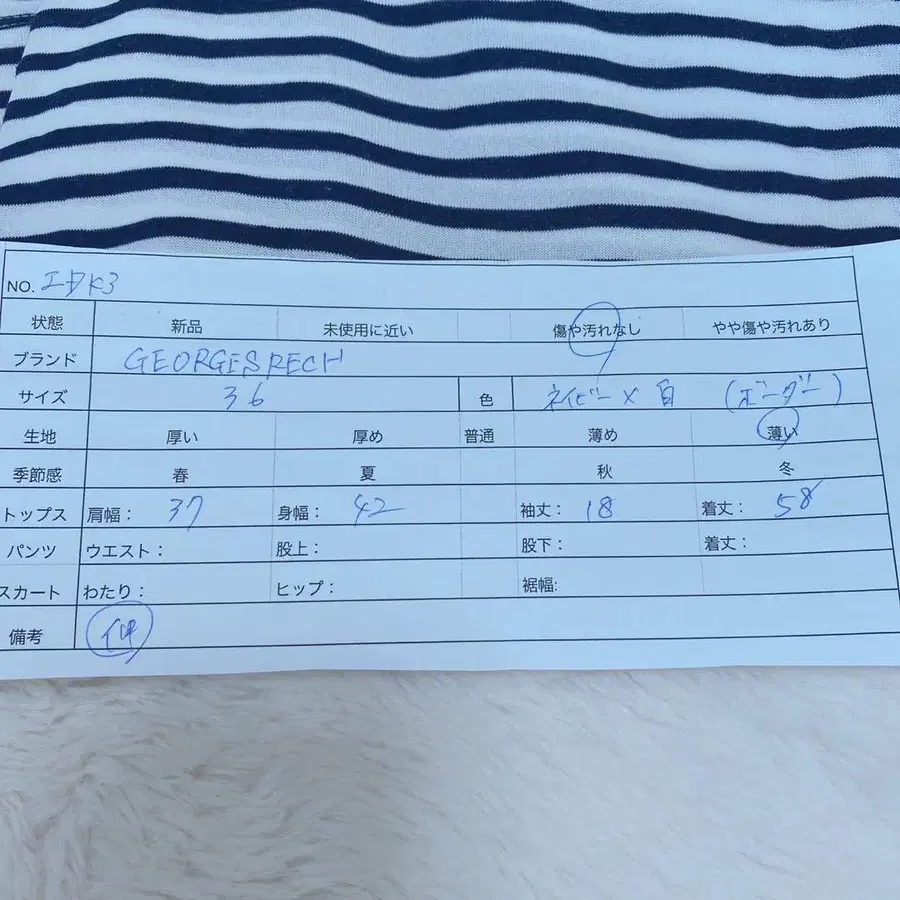 NO. エタK3
状態 新品 未使用に近い 傷や汚れなし やや傷や汚れあり
ブランド GEORGES RECH
サイズ 36 色 ネイビー×白 (ボーダー)
生地 厚い 厚め 普通 薄め 薄い
季節感 春 夏 秋 冬
トップス 肩幅: 37 身幅: 42 袖丈: 18 着丈: 58
パンツ ウエスト: 股上: 股下: 着丈:
スカート わたり: ヒップ: 裾幅:
備考 伸